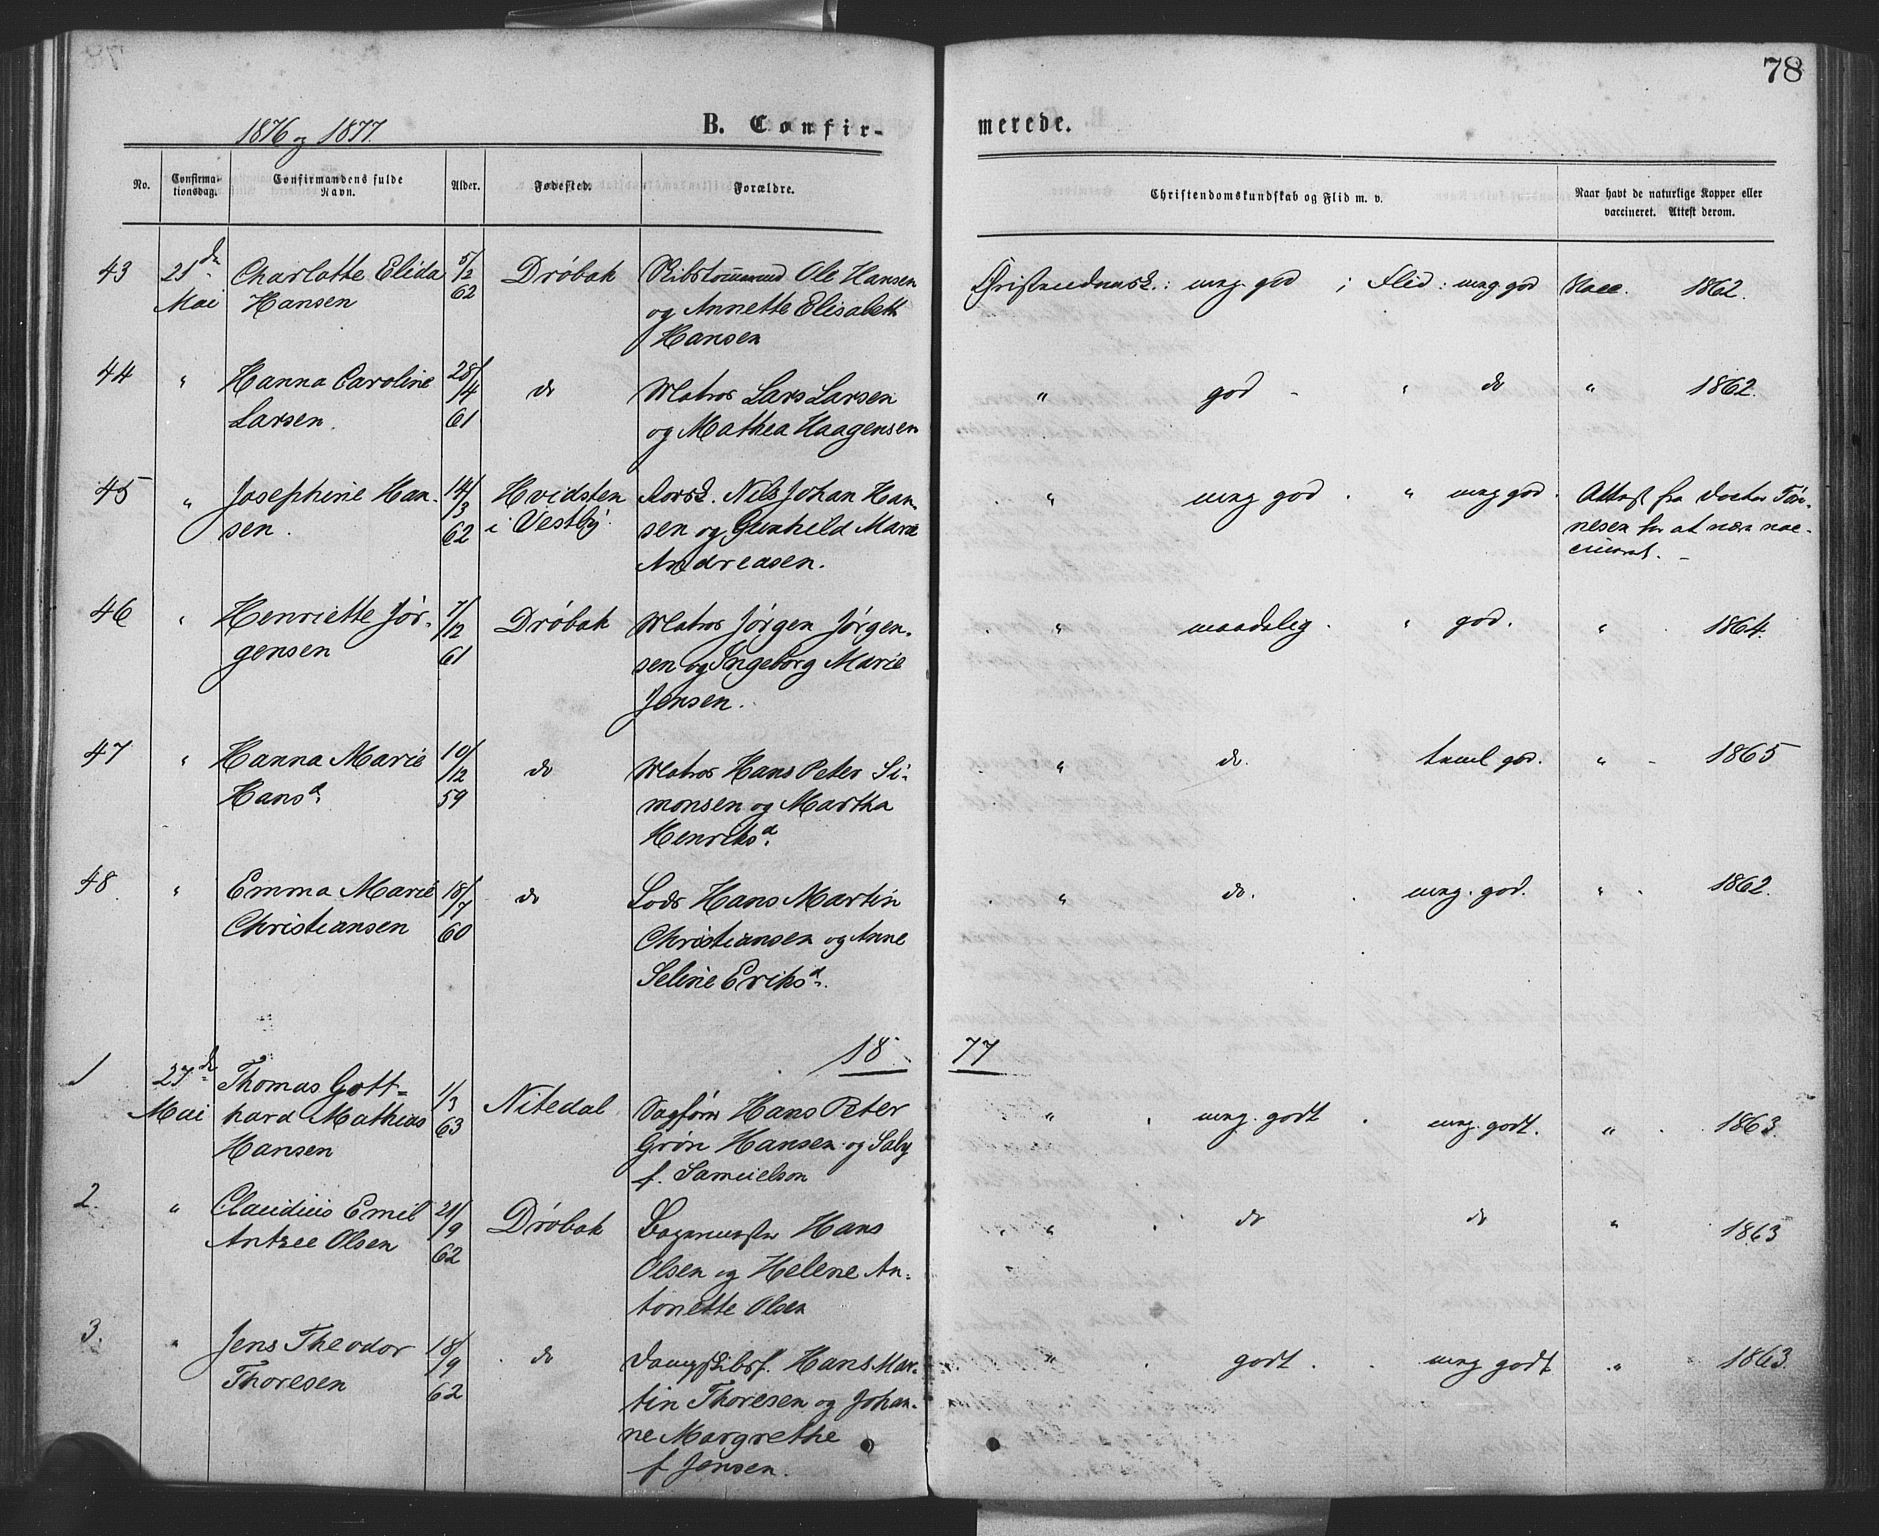 78
1876 og 1877.
B. Confir-
merede.
No.
Confirma-
tionsdag.
Confirmandens fulde
Navn.
Alder.
Fødested.
Forældre.
Christendomskundskab og Flid m. v.
Naar havt de naturlige Kopper eller
vaccineret. Attest derom.
43 21de Charlotte Elida 5/12 Drøbak Skibstømmermd Ole Hansen Christendomsk.: meg. god ; Flid: meg god Vacc. 1862.
Mai Hansen 62 og Annette Elisabeth
Hansen
44 " Hanna Caroline 28/14 do Matros Lars Larsen " god - " do " 1862.
Larsen. 61 og Mathea Haagensen
45 " Josephine Han- 14/3 Hvidsten Nils Johan Han- " meg god. " meg god. Attest fra Doctor Tøn-
sen. 62 i Vestby. sen og Gunhild Marie nesen for at være vac-
Andreasen. cineret. -
46 " Henriette Jør- 7/12 Drøbak Matros Jørgen Jørgen- " maadelig. " god. " 1864.
gensen 61 sen og Ingeborg Marie
Jensen.
47 " Hanna Marie 10/12 do Matros Hans Peter Si- " do. taal. god. " - 1865
Hansd. 59 monsen og Martha
Henriksd.
48. " Emma Marie 18/7 do Lods Hans Martin " do. meg. god. " 1862.
Christiansen 60 Christiansen og Anne
Seline Eriksd.
18 77
1 27de Thomas Gott- 1/3 Nitedal Sagfører Hans Peter " meg. godt meg. godt. " 1863.
Mai hard Mathias 63 Grøn Hansen og Saby
Hansen f. Samuelson
2. " Claudius Emil 21/9 Drøbak Hans " do do " 1863
Antzee Olsen 62 Olsen og Helene An-
tonette Olsen
3. " Jens Theodor 18/9 do Dampskibsf. Hans Mar- " godt. meg godt " 1863.
Thoresen 62 tin Thoresen og Johan-
ne Margrethe
f Jensen.